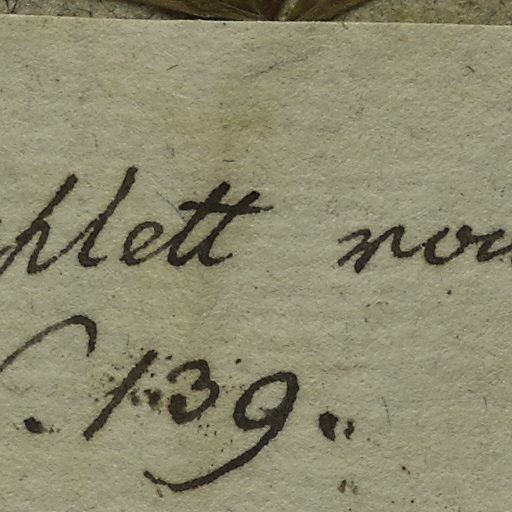 hlett nou
. 139.